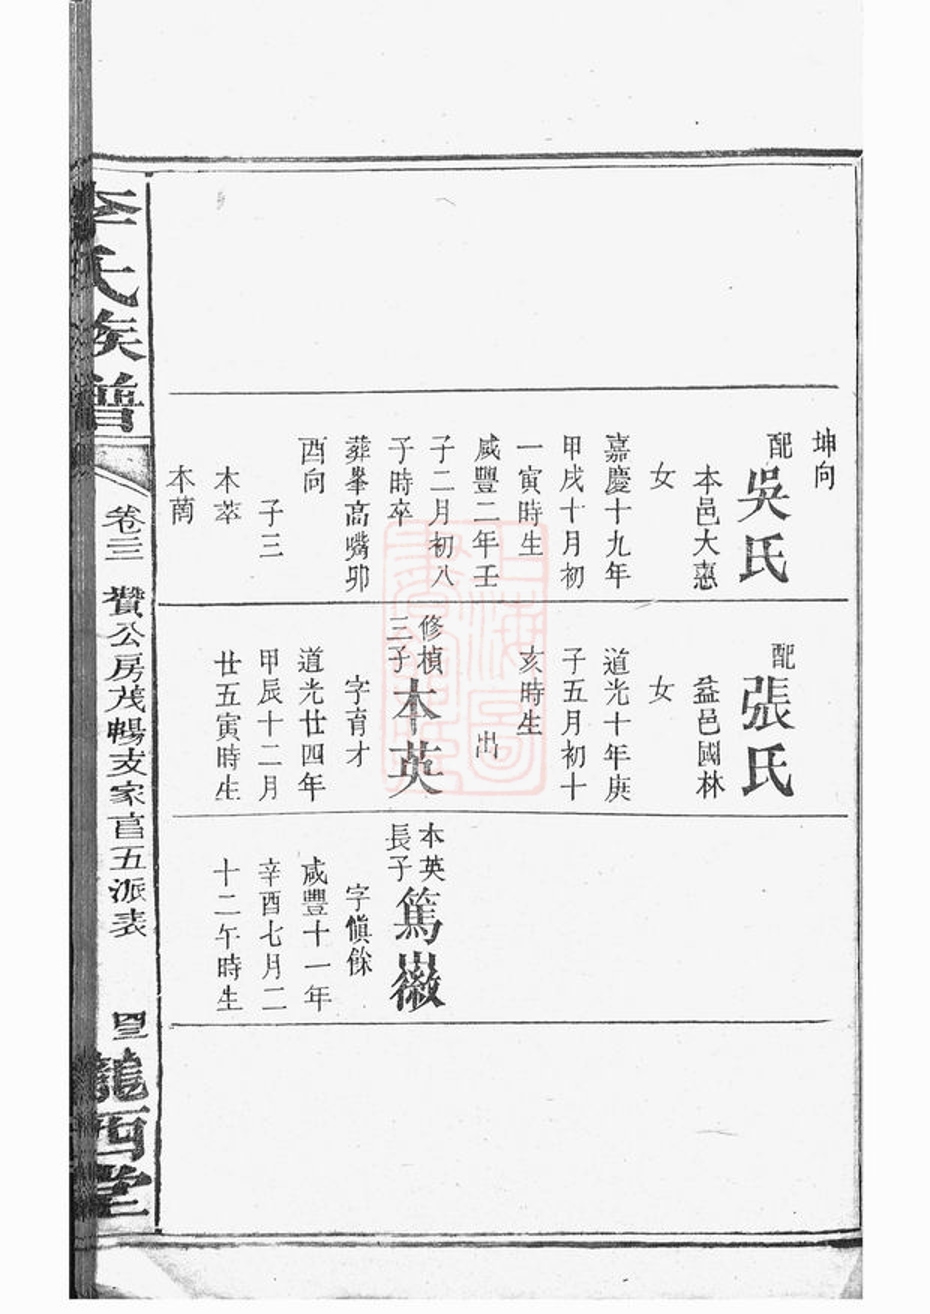 坤向
配吳氏
本邑大惪
女
嘉慶十九年
甲戌十月初
一寅時生
咸豐二年壬
子二月初八
子時卒
葬峯高嘴卯
酉向
子三
本萃
本蘭
配張氏
益邑國林
女
道光十年庚
子五月初十
亥時生
出
修楨
三子
本英
字育才
道光廿四年
甲辰十二月
廿五寅時生
本英
長子
篤
字愼餘
咸豐十一年
辛酉七月二
十二午時生
李氏族譜
卷三
贊公房茂暢支家
五派表
隴西堂